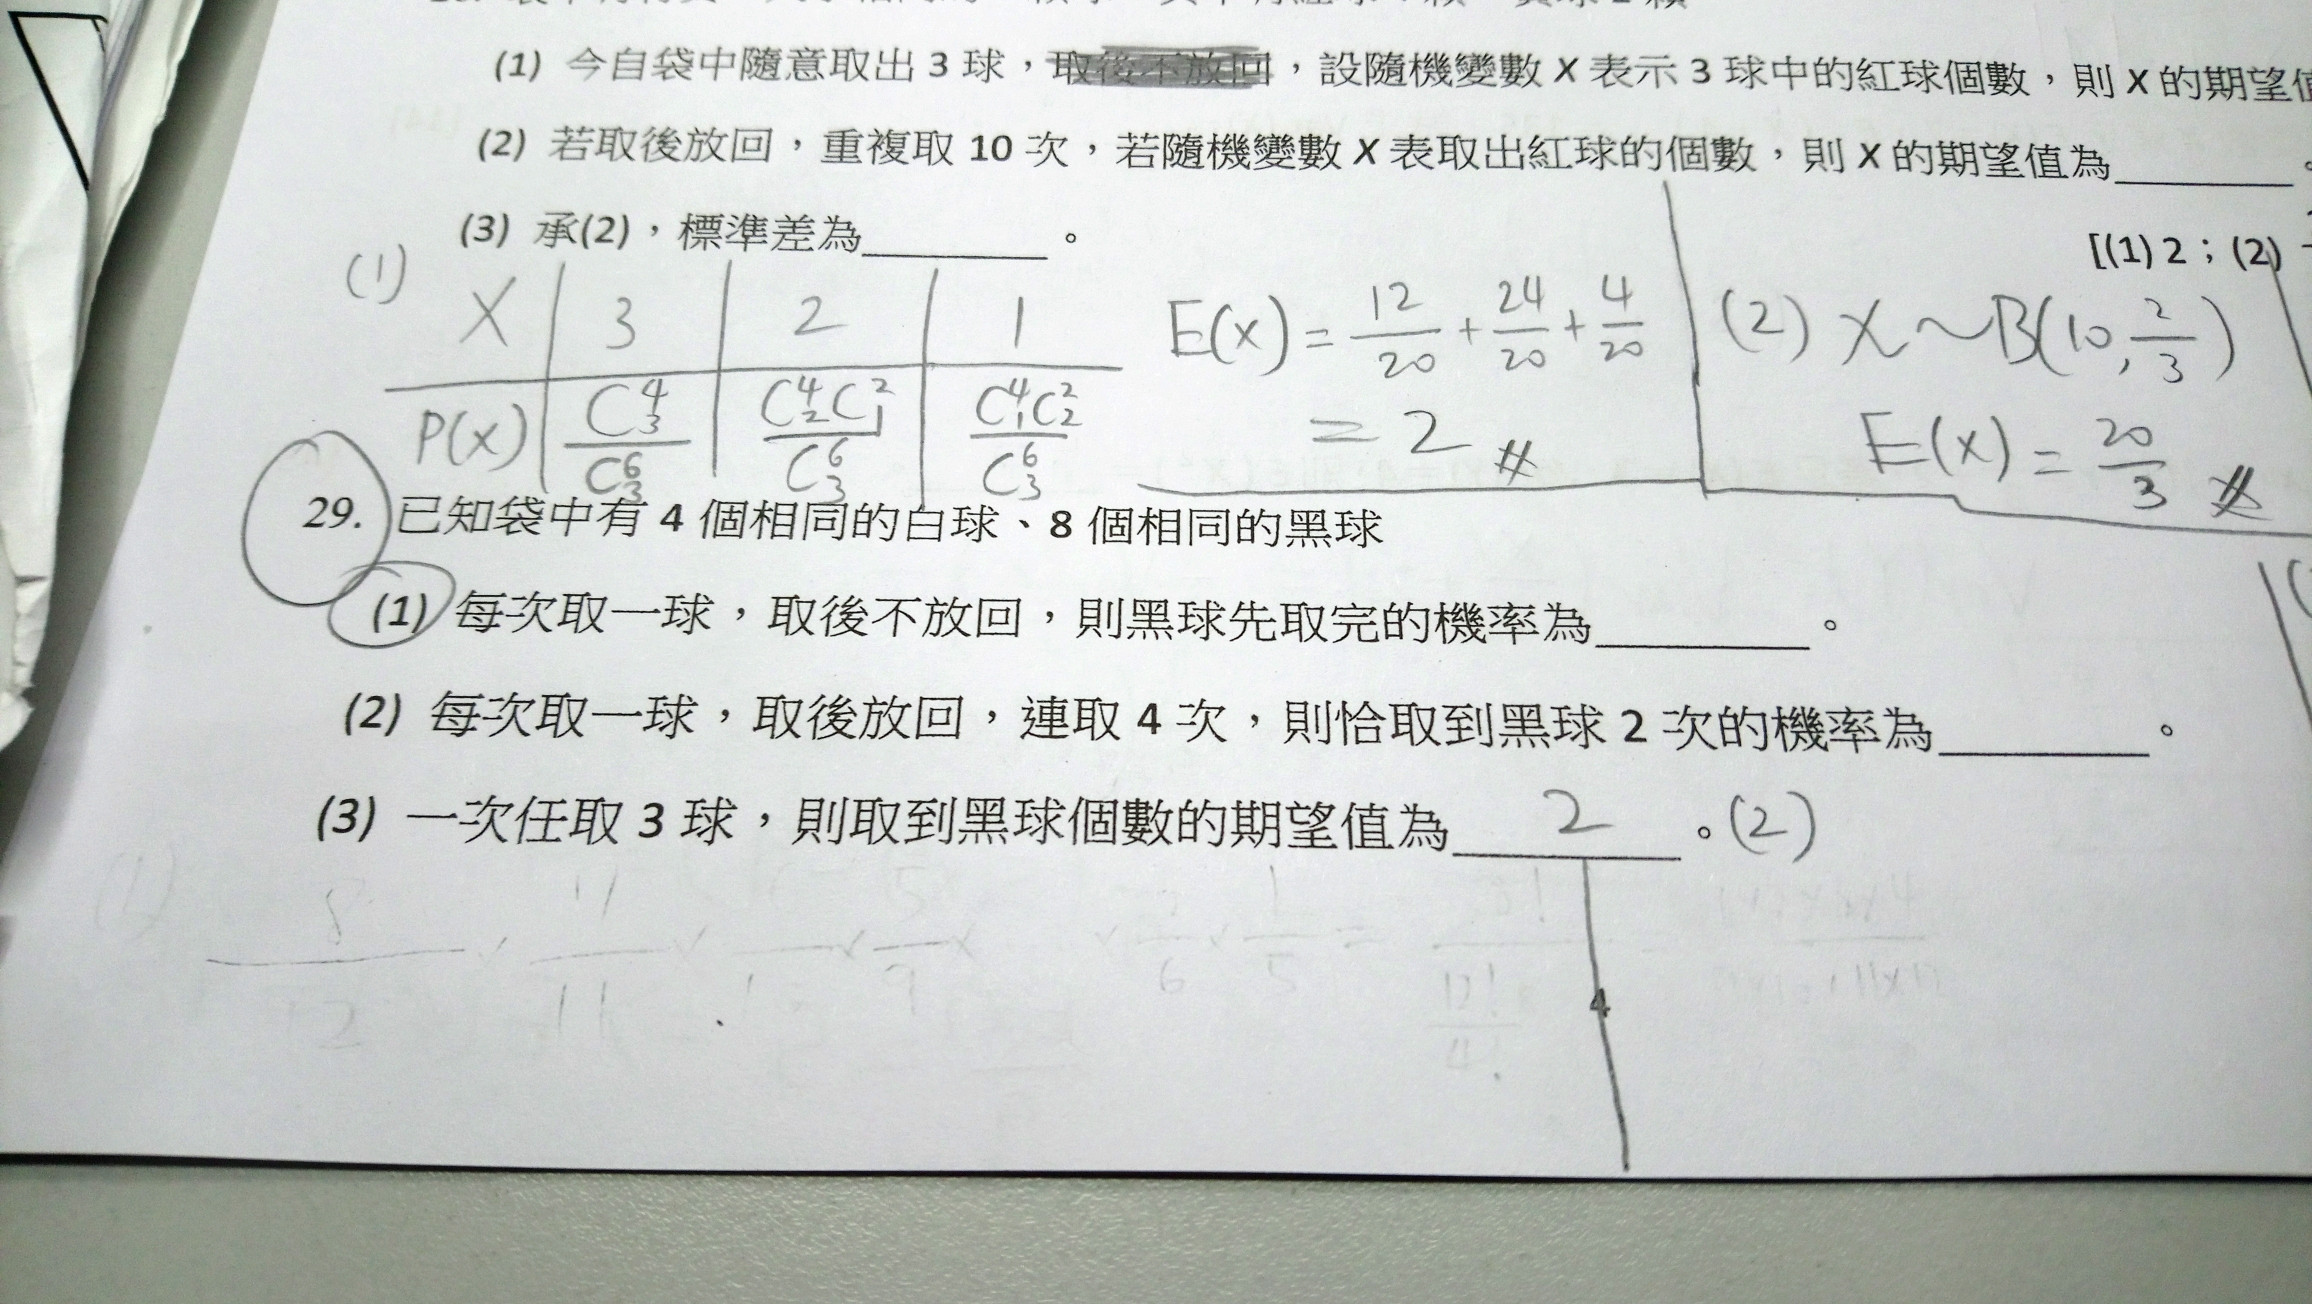 (1) 今自袋中隨意取出 3 球，取後不放回，設隨機變數 X 表示 3 球中的紅球個數，則 X 的期望值
(2) 若取後放回，重複取 10 次，若隨機變數 X 表取出紅球的個數，則 X 的期望值為________。
(3) 承(2)，標準差為________。
[(1) 2；(2)
(1)
X 3 2 1
P(x) C^4_3/C^6_3 C^4_2C^2_1/C^6_3 C^4_1C^2_2/C^6_3
E(x) = 12/20 + 24/20 + 4/20
= 2 #
(2) X~B(10, 2/3)
E(x) = 20/3 #
29. 已知袋中有 4 個相同的白球、8 個相同的黑球
(1) 每次取一球，取後不放回，則黑球先取完的機率為________。
(2) 每次取一球，取後放回，連取 4 次，則恰取到黑球 2 次的機率為________。
(3) 一次任取 3 球，則取到黑球個數的期望值為 2 。(2)
4